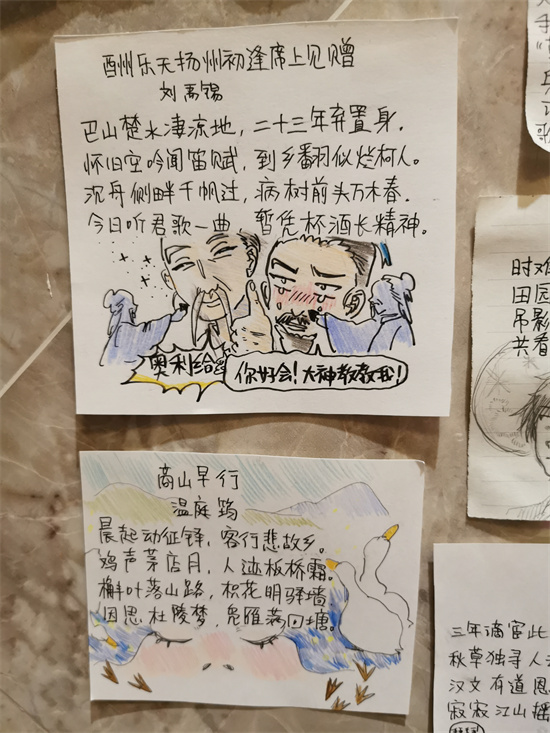 酬乐天扬州初逢席上见赠
刘禹锡
巴山楚水凄凉地，二十三年弃置身.
怀旧空吟闻笛赋，到乡翻似烂柯人。
沉舟侧畔千帆过，病树前头万木春。
今日听君歌一曲 暂凭杯酒长精神。
奥利给
你好会！大神教教我！
商山早行
温庭筠
晨起动征铎，客行悲故乡。
鸡声茅店月，人迹板桥霜。
槲叶落山路，枳花明驿墙
因思杜陵梦，凫雁满回塘。
时难
田园
吊影
共看
三年谪宦此
秋草独寻人
汉文有道恩
寂寂江山摇